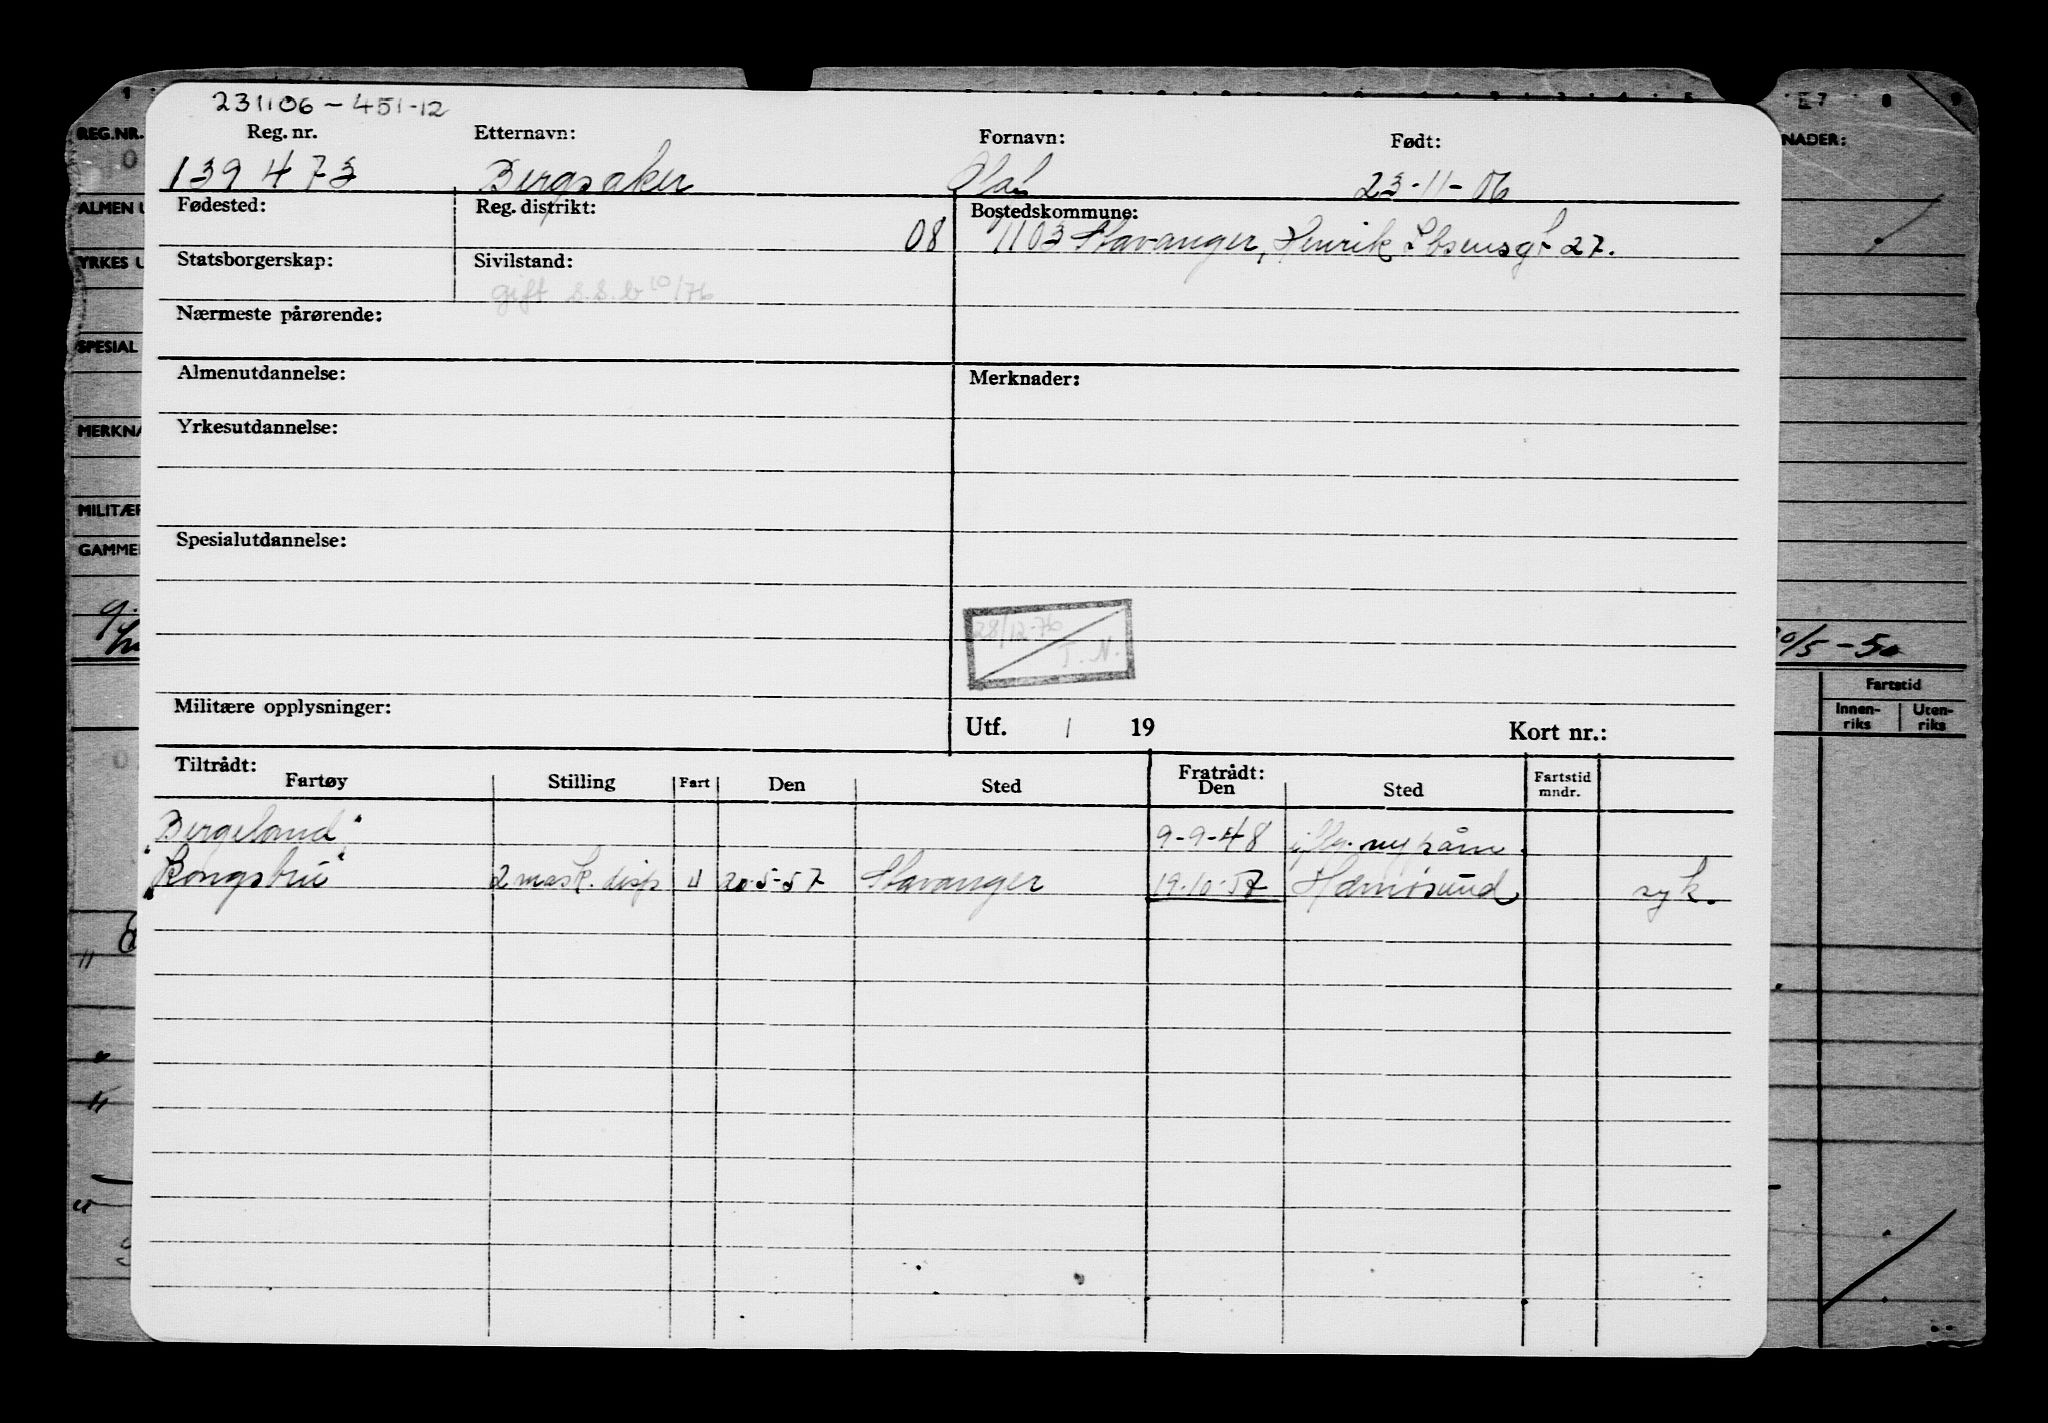 231106-451-12
Reg. nr. Etternavn: Fornavn: Født:
139473 Bergsaker Olaf 23-11-06
Fødested: Reg. distrikt: Bostedskommune:
08 1103 Stavanger, Henrik Ibsensgt 27.
Statsborgerskap: Sivilstand:
gift S.S.b 10/76
Nærmeste pårørende:
Almenutdannelse: Merknader:
Yrkesutdannelse:
Spesialutdannelse:
28/12-76
T. N.
Militære opplysninger:
Utf. / 19 Kort nr.:
Tiltrådt: Fratrådt:
Fartøy Stilling Fart Den Sted Den Sted Fartstid mndr.
"Bergeland" 9-9-48 iflg. ny
"Kongsbru" 2 mask. disp U 20-5-57 Stavanger 19-10-57 syk.
REG.NR.
ALMEN U
YRKES U
SPESIAL
MERKNA
MILITÆR
GAMMEL
E7 8 9
NADER:
/5 - 50
Fartstid
Innen-riks Uten-riks